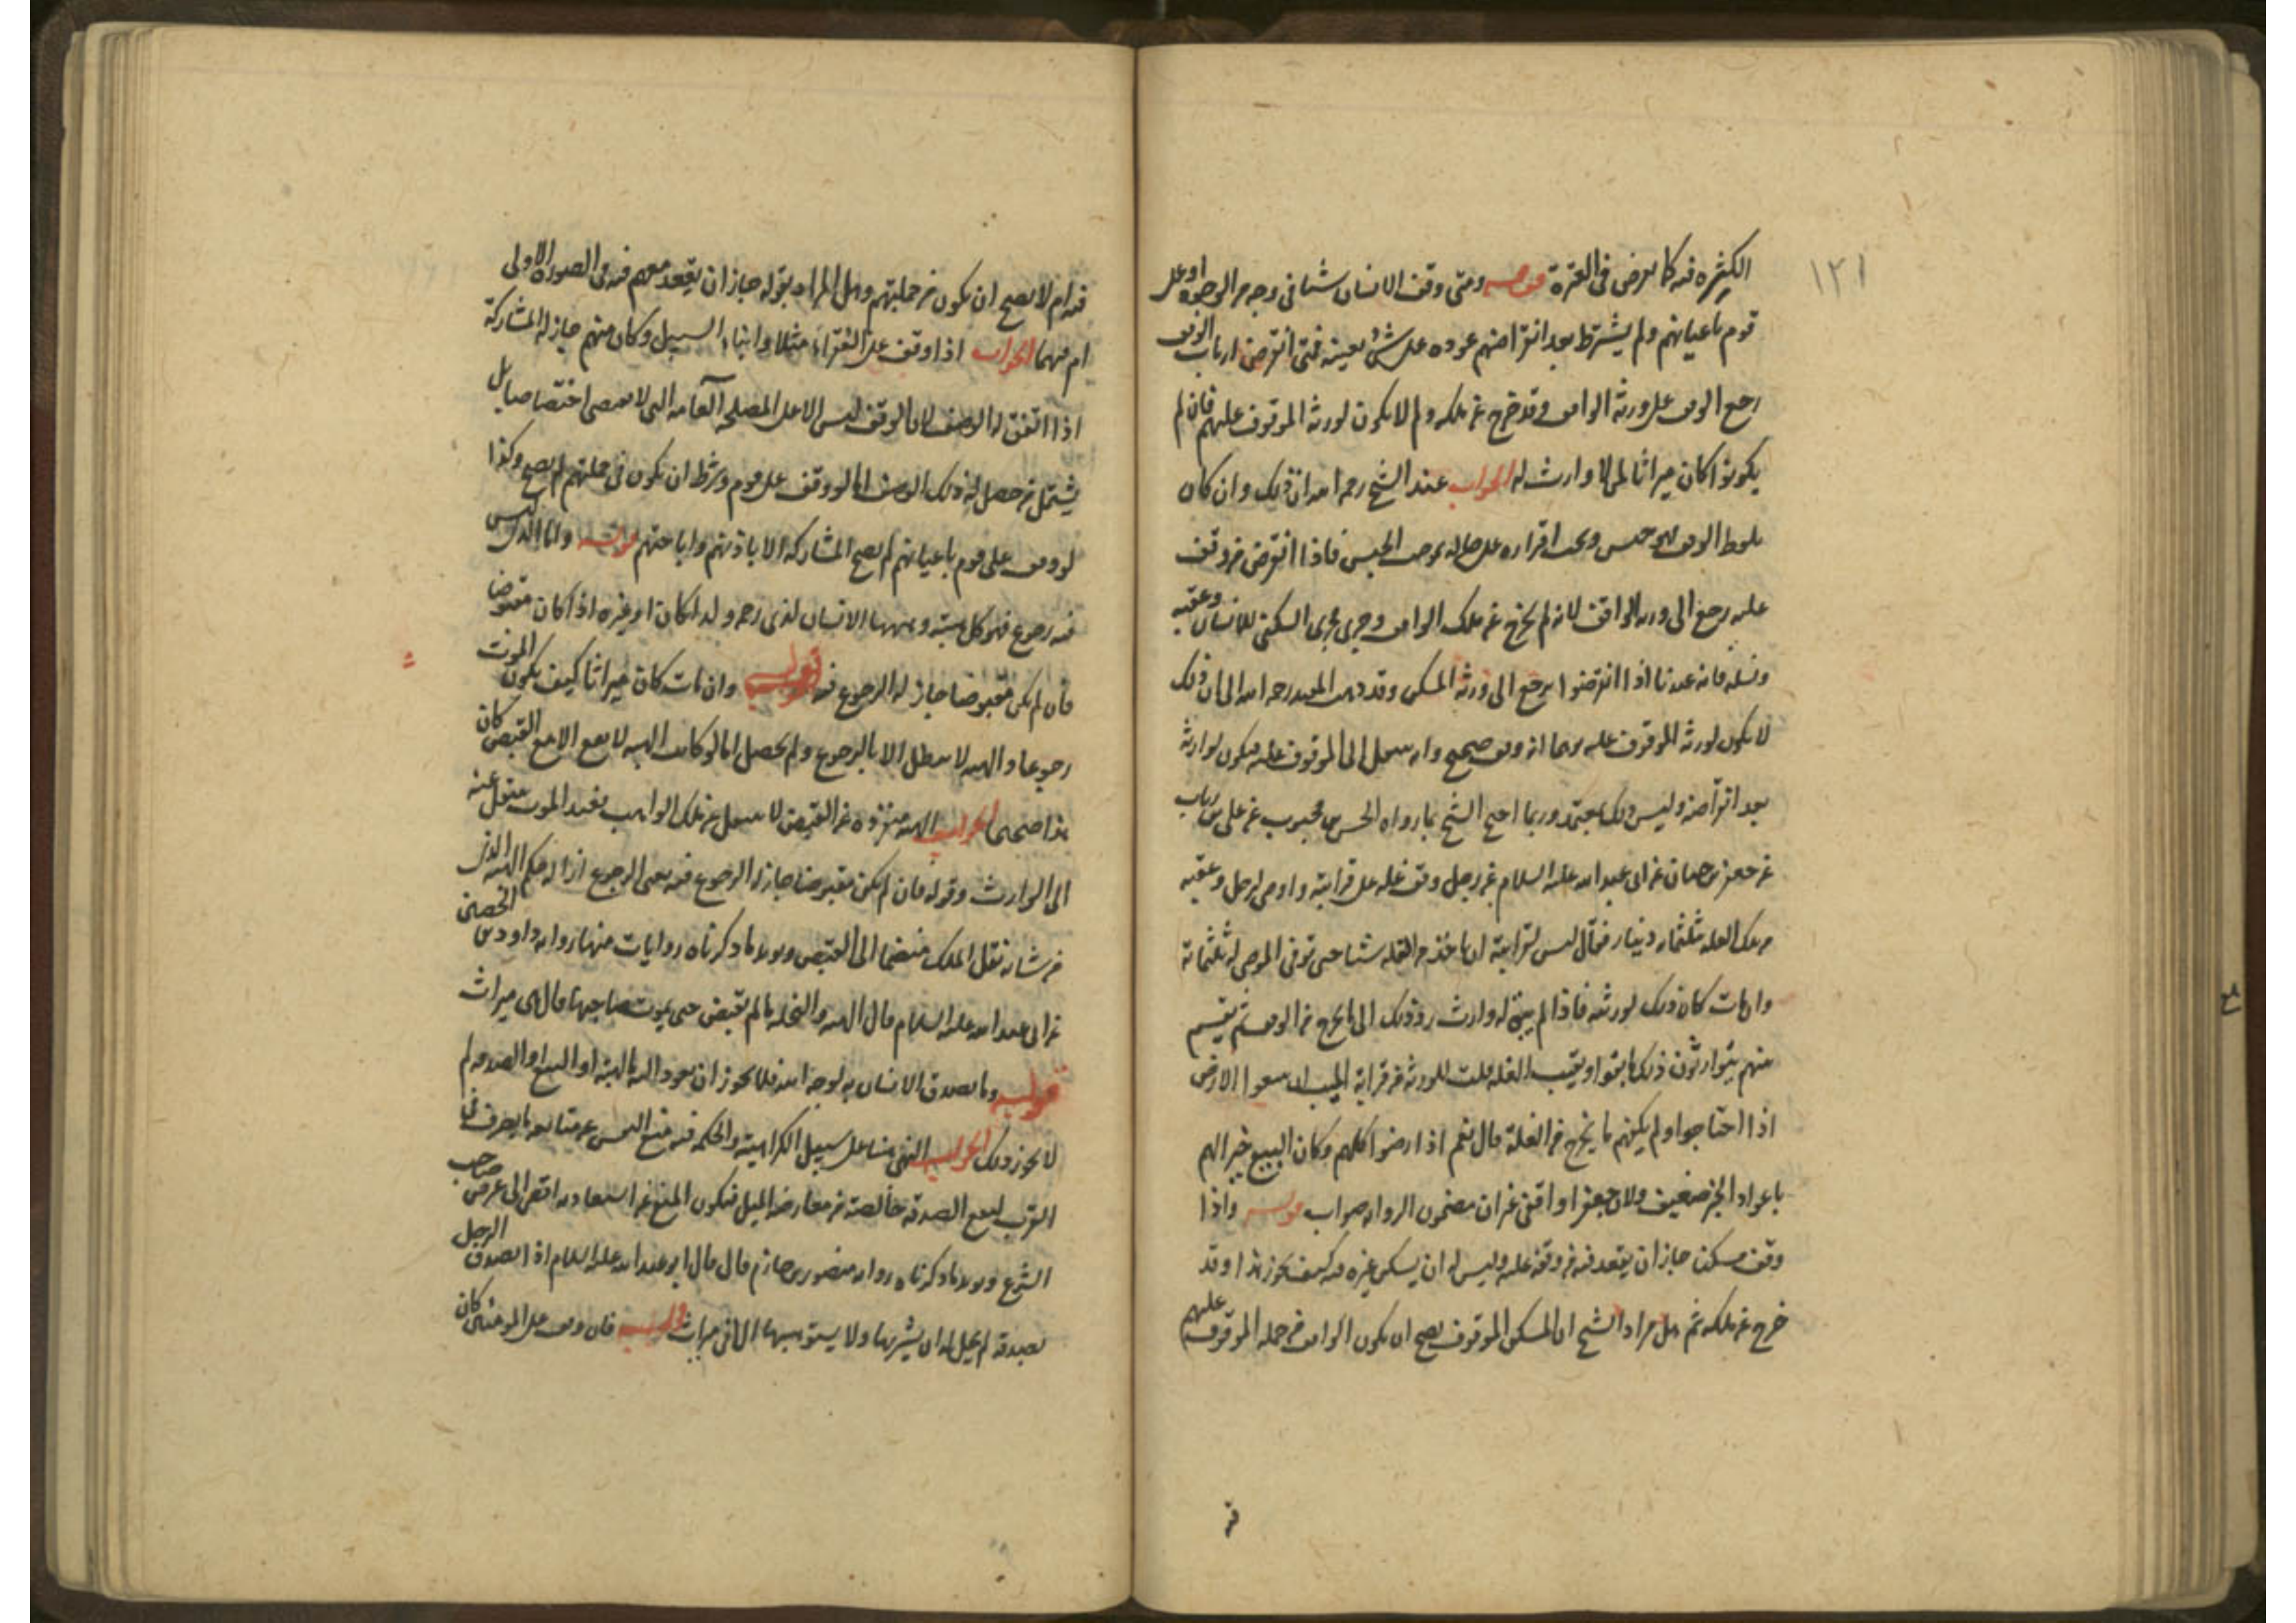 ١٢١
الكثيره فيه كما يعرض في العترة قوله ومتى وقف الانسان شيئا في وجه من الوجوه او على
قوم باعيانهم ولم يشترط بعد انقراضهم عوده على شئ بعينه فمتى انقرض ارباب الوقف
رجع الوقف على ورثة الواقف وقد خرج عن ملكه ولم لا يكون لورثة الموقوف عليهم فان لم
يكونوا كان ميراثا لمن لا وارث له الجواب عند الشيخ رحمه الله ان ذلك وان كان
بلفظ الوقف فهو حبس ويجب اقراره على حاله بموجب الحبس فاذا انقرض من وقف
عليه رجع الى ورثة الواقف لانه لم يخرج عن ملك الواقف وجرى مجرى السكنى للانسان وعقبه
ونسله فانه عندنا اذا انقرضوا يرجع الى ورثة المسكن وقد ذهب المفيد رحمه الله الى ان ذلك
لا يكون لورثة الموقوف عليه توهما انه وقف صحيح وانه ينتقل الى الموقوف عليه فيكون لوارثه
بعد انقراضه وليس ذلك بمعتمد وربما احتج الشيخ بما رواه الحسن بن محبوب عن علي بن رياب
عن جعفر بن حيان عن ابي عبد الله عليه السلام عن رجل وقف غلة على قرابته واوصى لرجل وعقبه
من تلك الغله بثلثمائه دينار فقال ليس لقرابته ان ياخذ من الغله شيئا حتى توفي الموصى له ثلثمائة
وان مات كان ذلك لورثته فاذا لم يبق له وارث رد ذلك الى ما يخرج من الوقف ثم يقسم
منهم يتوارثون ذلك ما بقوا وبقيت الغله قلت للورثة من قرابة الميت ان يبيعوا الارض
اذا احتاجوا ولم يكفهم ما يخرج من الغلة قال نعم اذا رضوا كلهم وكان البيع خيرا لهم
باعوا والخبر ضعيف ولان جعفرا واقفي غير ان مضمون الروايه صواب قوله واذا
وقف مسكنا جاز ان يقعد فيه مع من وقفه عليه وليس له ان يسكن غيره فيه كيف يجوز هذا وقد
خرج عن ملكه ثم هل مراد الشيخ ان المسكن الموقوف يصح ان يكون الواقف من جمله الموقوف عليهم
فيه
فيه ام لا يصح ان يكون من جملتهم وهل المراد بقوله جاز ان يقعد معهم فيه في الصوره الاولى
ام فيهما الجواب اذا وقف على الفقراء مثلا او ابناء السبيل وكان منهم جاز له المشاركة
اذا اتفق له الوصف لان الوقف ليس الا على المصلحه العامه التي لا يقتضي اختصاصا بل
يشتمل من حصل له ذلك الوصف اما لو وقف على قوم وشرط ان يكون في جملتهم لم يصح وكذا
لو وقف على قوم باعيانهم لم يصح المشاركه الا باذنهم واباحتهم قوله واما الذي ليس
فيه رجوع فهو كل هبة وهبها الانسان لذي رحمه ولدا كان او غيره اذا كان مقبوضا
فان لم يكن مقبوضا جاز له الرجوع فيه قوله وان مات كان ميراثا كيف يكون الموت
رجوعا والهبه لا تبطل الا بالرجوع ولم يحصل اما لو كانت الهبه لا تقع الا مع القبض كان
هذا صحيحا الجواب الهبه منفرده عن القبض لا تنتقل عن ملك الواهب فعند الموت ينتقل عنه
الى الوارث وقوله فان لم يكن مقبوضا جاز له الرجوع فيه معنى الرجوع ازاله حكم الهبه الذي
من شانه نقل الملك منضما الى القبض ويويد ما ذكرناه روايات منها روايه داود بن الحصين
عن ابي عبد الله عليه السلام قال الهبه والنحله ما لم تقبض حتى يموت صاحبها قال هي ميراث
قوله وما تصدق الانسان به لوجه الله فلا يجوز ان يعود اليه بالهبة او البيع او الصدقه لم
لا يجوز ذلك الجواب النهي هنا على سبيل الكراهية والحكمه فيه منع النفس عن متابعه ما يصرف في
القرب ليقع الصدقه خالصة من معارضه الميل فيكون المنع عن استعادته اقصى الى غرض صاحب
الشرع ويويد ما ذكرناه روايه منصور بن حازم قال قال ابو عبد الله عليه السلام اذا تصدق الرجل
بصدقة لم يحل له ان يشتريها ولا يستوهبها الا في ميراث قوله فان وقف على المومنين كان